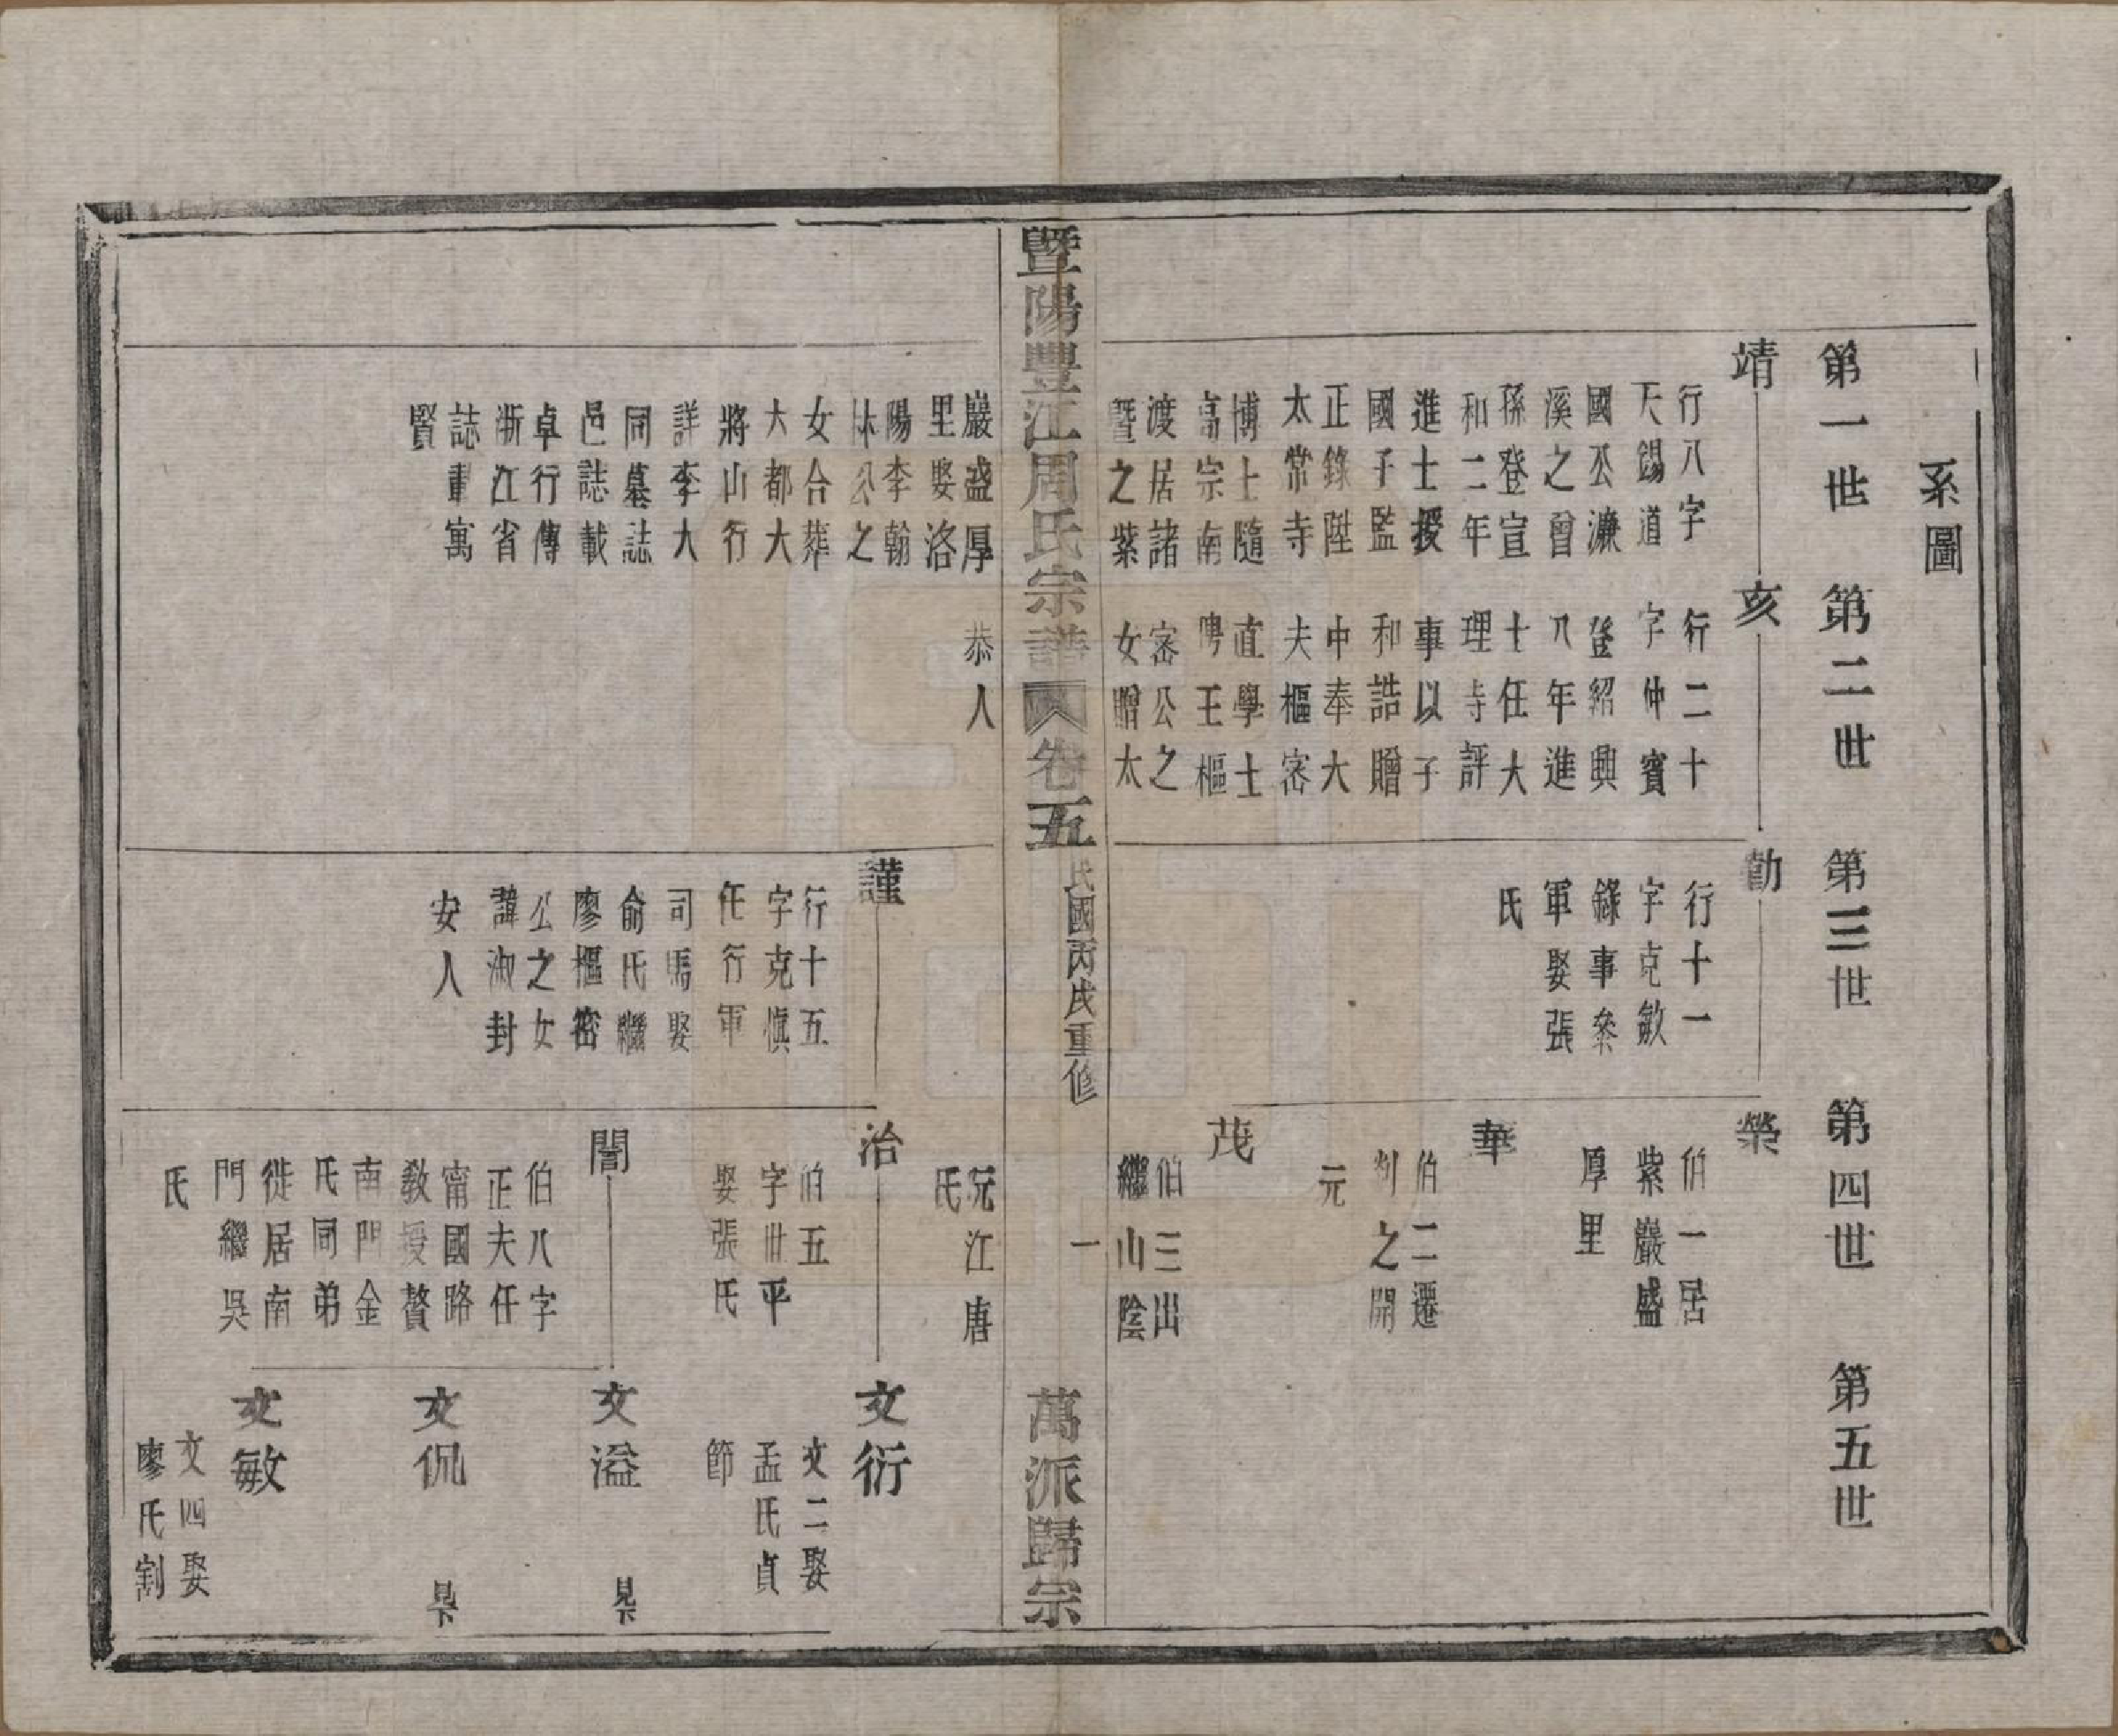 系圖
第一世
第二世
第三世
第四世
第五世
靖
行八字
天錫道
國公濂
溪之曾
孫登宣
和二年
進士授
國子監
正錄陞
太常寺
博士隨
高宗南
渡居諸
暨之紫
亥
行二十
字仲賓
登紹興
八年進
士任大
理寺評
事以子
和誥贈
中奉大
夫樞密
直學士
娉王樞
密公之
女贈太
勤
行十一
字克敏
錄事叅
軍娶張
氏
榮
伯一居
紫巖盛
厚里
華
伯二遷
判之開
元
茂
伯三出
繼山陰
暨陽豐江周氏宗譜
卷五
民國丙戌重修
一
萬派歸宗
巖盛厚
里娶洛
陽李翰
林公之
女合葬
大都大
將山行
詳李大
同墓誌
邑誌載
卓行傳
浙江省
誌載寓
賢
恭人
謹
行十五
字克慎
任行軍
司馬娶
俞氏繼
廖樞密
公之女
諱淑封
安人
沅江唐
氏
治
伯五
字世平
娶張氏
誾
伯八字
正夫任
甯國路
敎授贅
南門金
氏同弟
徙居南
門繼吳
氏
文衍
文二娶
孟氏貞
節
文溢
見下
文侃
見下
文敏
文四娶
廖氏割